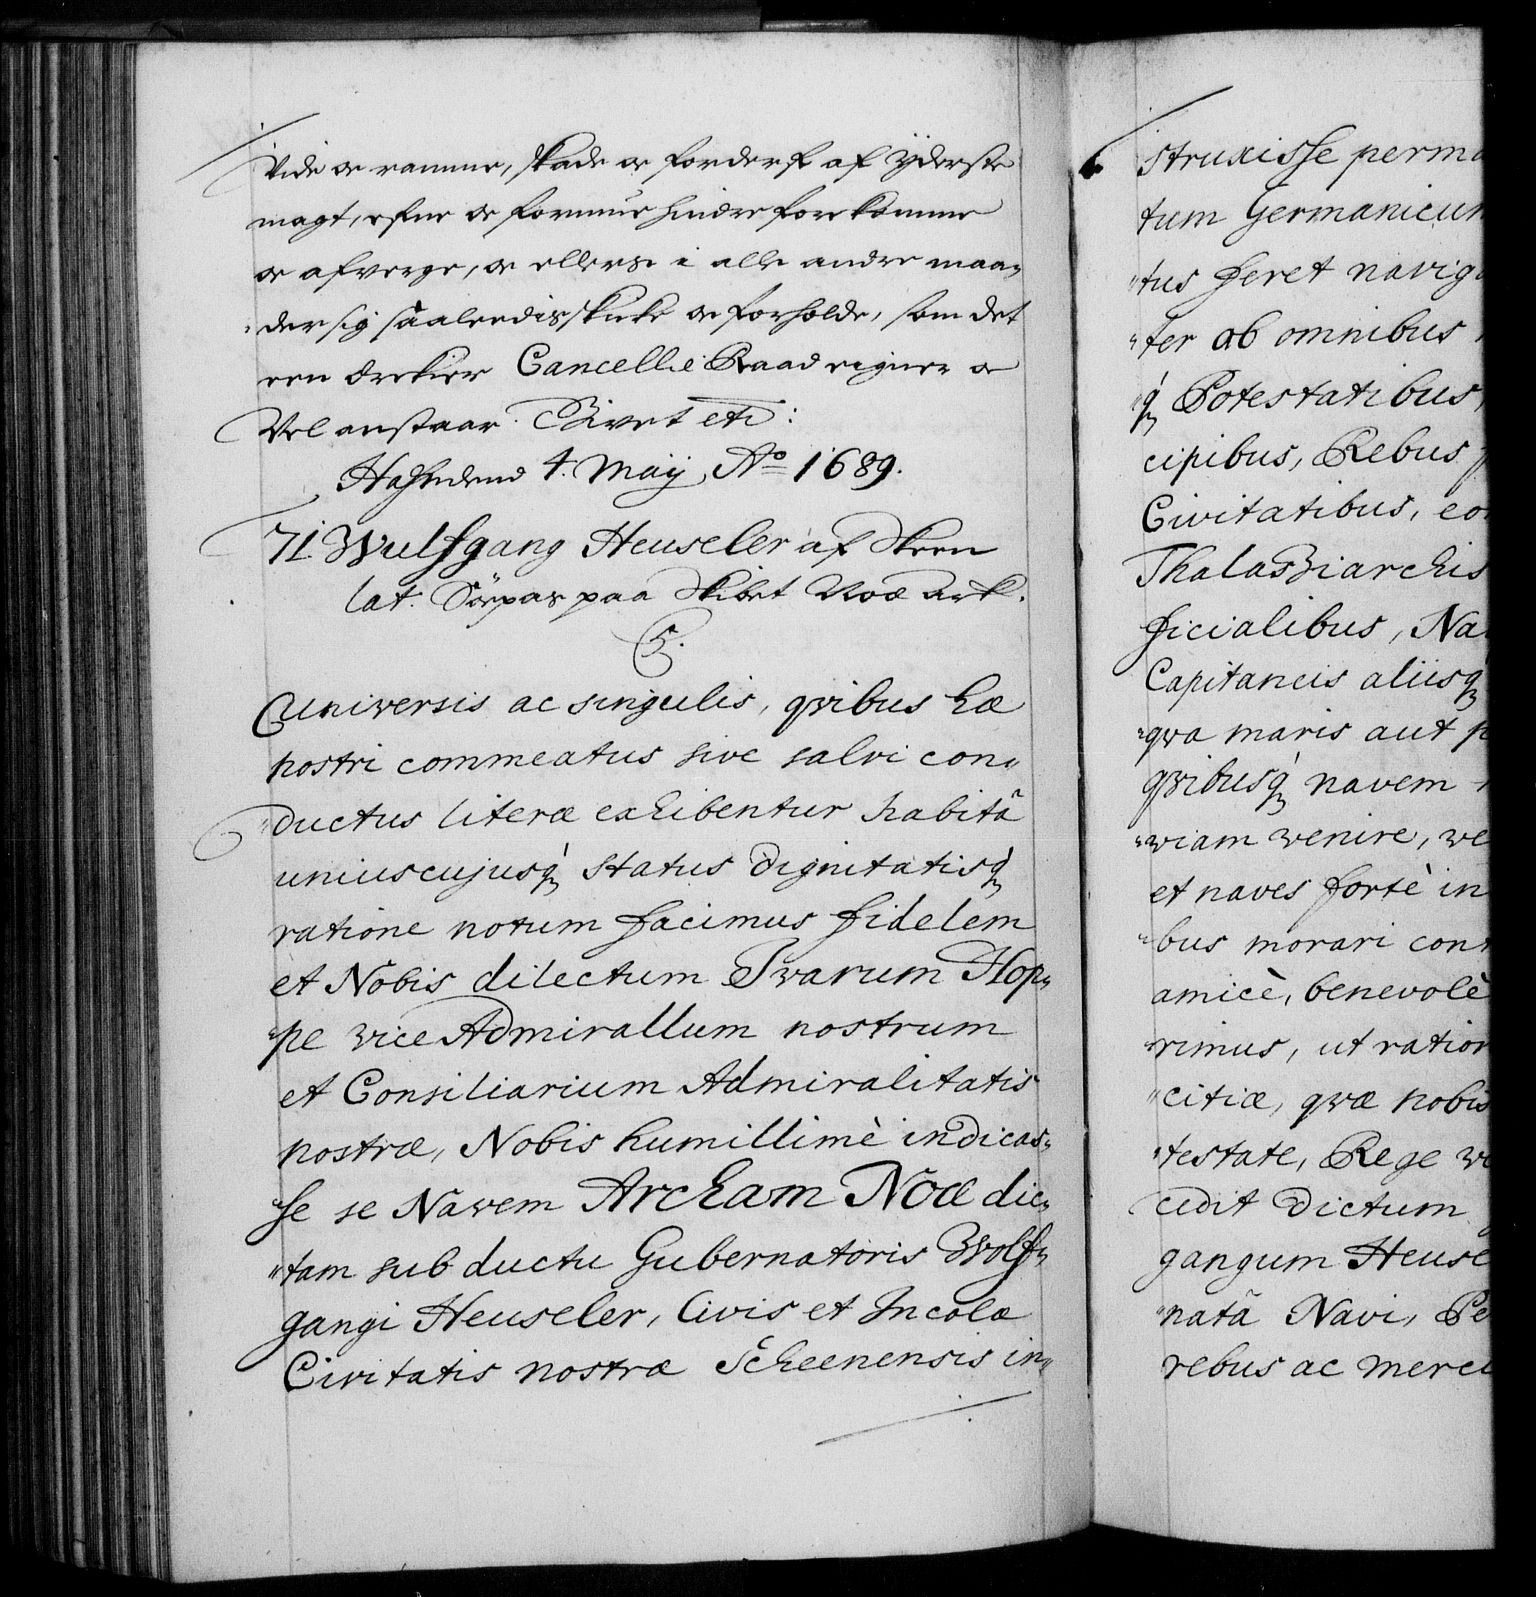 vide og ramme, skade og forderf af ÿderste
magt, efne og formue hindre forekomme
og afverge, og ellers i alle andre maa„
„der sig saaleedis skicke og forholde, som det
een ærekier Cancellie Raad eigner og
Vel anstaar. Givet etc:
Hafniæ 4. Maÿ Aº 1689.
71. Wulfgang Heuseler af Skeen
lat. Söepas paa Skibet Noæ Ark.
C5.
Universis ac singulis, qvibus hæ
nostri commeatus sive salvi con„
„ductus literæ exhibentur habitâ
uniuscujusq́ status dignitatisq́
ratione notum facimus fidelem
et Nobis dilectum Ivarum Hop„
„pe vice Admirallum nostrum
et Consiliarium Admiralitatis
nostræ, Nobis humillimè indicas„
se se Navem Archam Noæ dic„
„tam sub ductu Gubernatoris Wolf„
gangi Heuseler, Civis et Incolæ
Civitatis nostræ Scheenensis in„
struxisse perma
tum Germanicum
„tus feret naviga
„ter ab omnibus
q́ Potestatibus,
cipibus, Rebus p
Civitatibus, co
Thalassiarchis
ficialibus, Na
Capitaneis aliisq́
„qva maris aut p
qvibusq́ navem
„viam venire, ve
et naves fortè in
„bus morari con
amicè, benevolè
„rimus, ut ration
„citiæ, qvæ nobis
„testate, Rege ve
cedit dictum
gangum Heuse
„natâ Navi, Pe
rebus ac merci